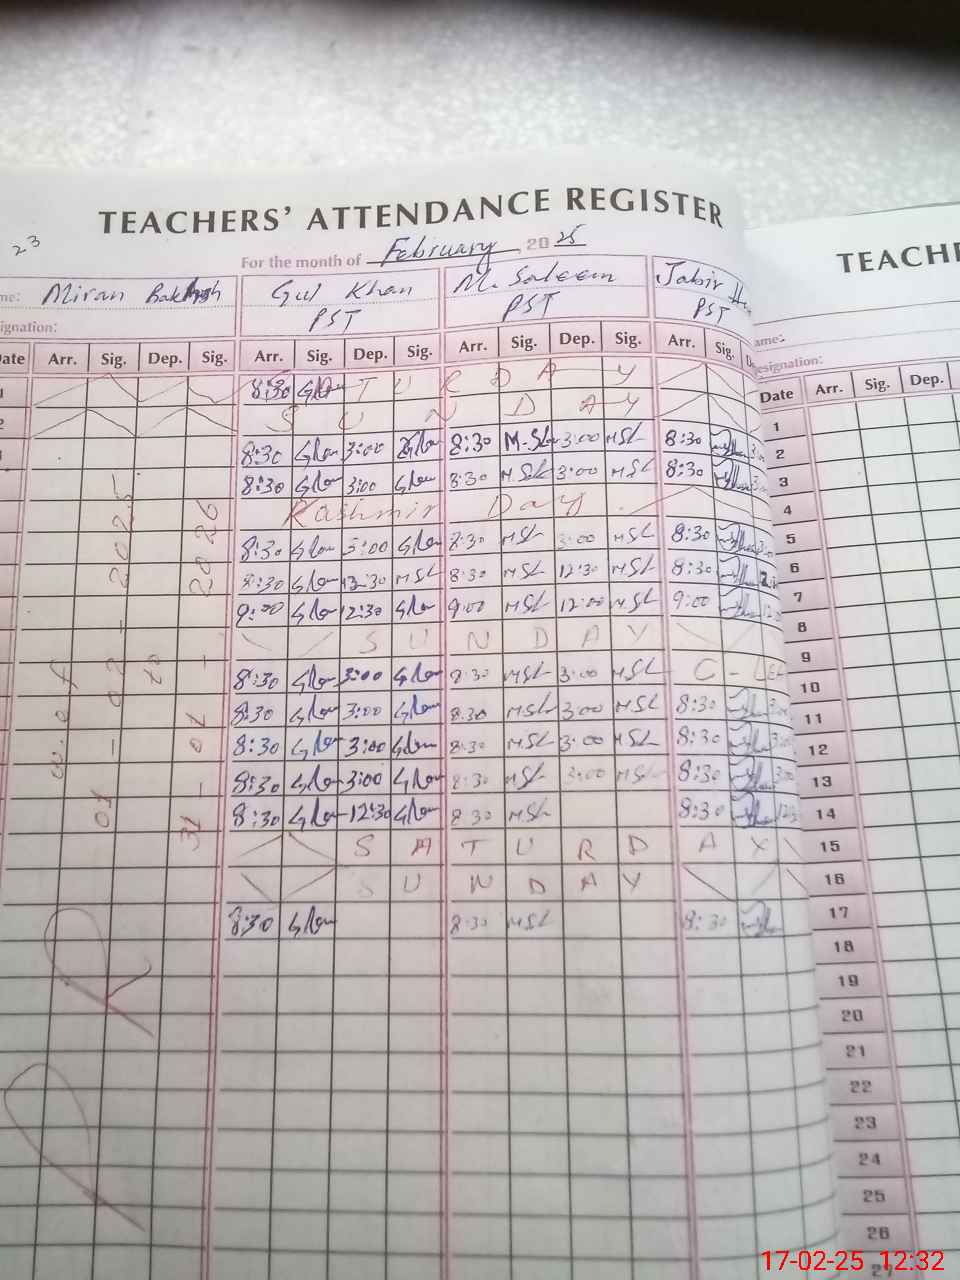 TEACHERS' ATTENDANCE REGISTER
23
For the month of February 2025
TEACHE
me: Miran Bakhsh Gul Khan M. Saleem Jabir
ame:
ignation: PST PST PST
esignation:
ate Arr. Sig. Dep. Sig. Arr. Sig. Dep. Sig. Arr. Sig. Dep. Sig. Arr. Sig. D
Date Arr. Sig. Dep.
1 8:30 T U R D A Y
2 S U N D A Y
8:30 3:00 8:30 M.SL 3:00 MSL 8:30
8:30 3:00 8:30 M.SL 3:00 MSL 8:30
Kashmir Day
8:30 3:00 8:30 MSL 3:00 MSL 8:30
8:30 12:30 MSL 8:30 MSL 12:30 MSL 8:30
9:00 12:30 9:00 MSL 12:00 M.SL 9:00
S U N D A Y
8:30 3:00 8:30 MSL 3:00 MSL C-Le
8:30 3:00 8:30 MSL 3:00 MSL 8:30
8:30 3:00 8:30 MSL 3:00 MSL 8:30
8:30 3:00 8:30 MSL 3:00 MSL 8:30 3:00
8:30 12:30 8:30 MSL 8:30
S A T U R D A Y
S U N D A Y
8:30 8:30 MSL 8:30
w.e.f 01-02-2025
to
31-01-2026
1
2
3
4
5
6
7
8
9
10
11
12
13
14
15
16
17
18
19
20
21
22
23
24
25
26
27
17-02-25 12:32